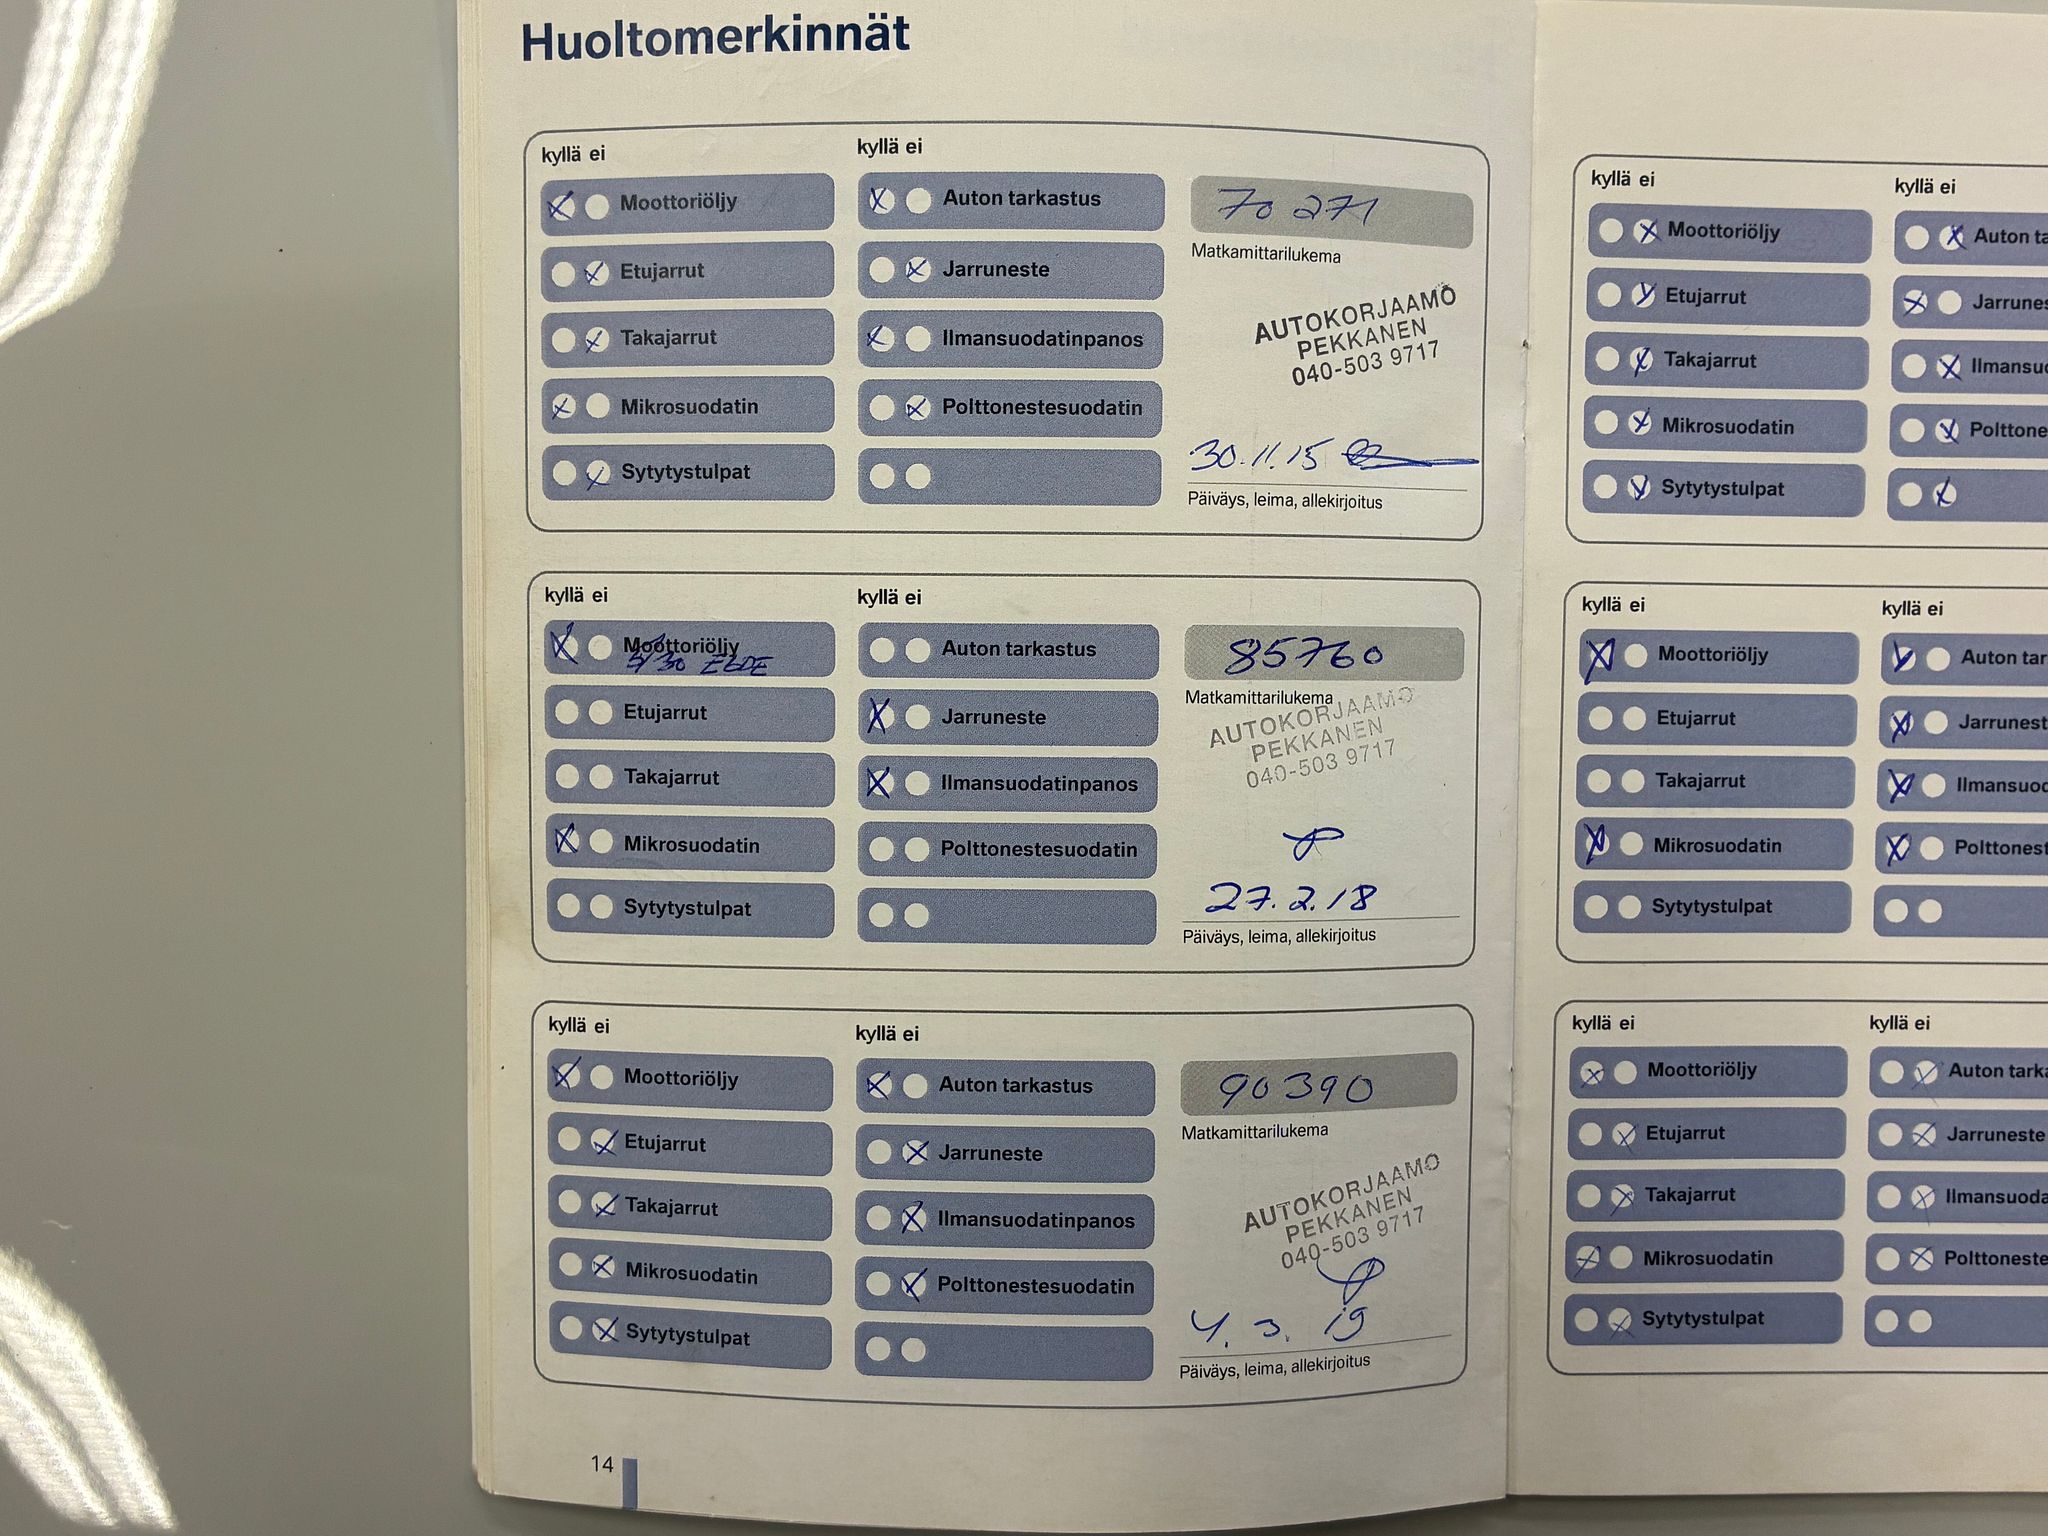 Huoltomerkinnät
kyllä ei
kyllä ei
Moottoriöljy
Auton tarkastus
70 271
Etujarrut
Jarruneste
Matkamittarilukema
Takajarrut
Ilmansuodatinpanos
AUTOKORJAAMO
PEKKANEN
040-503 9717
Mikrosuodatin
Polttonestesuodatin
Sytytystulpat
30.11.15
Päiväys, leima, allekirjoitus
kyllä ei
kyllä ei
Moottoriöljy
5/30
Auton tarkastus
85760
Etujarrut
Jarruneste
Matkamittarilukema
AUTOKORJAAMO
PEKKANEN
040-503 9717
Takajarrut
Ilmansuodatinpanos
Mikrosuodatin
Polttonestesuodatin
Sytytystulpat
27.2.18
Päiväys, leima, allekirjoitus
kyllä ei
kyllä ei
Moottoriöljy
Auton tarkastus
90390
Etujarrut
Jarruneste
Matkamittarilukema
Takajarrut
Ilmansuodatinpanos
AUTOKORJAAMO
PEKKANEN
040-503 9717
Mikrosuodatin
Polttonestesuodatin
Sytytystulpat
4. 3. 19
Päiväys, leima, allekirjoitus
14
kyllä ei
kyllä ei
Moottoriöljy
Auton ta
Etujarrut
Jarrunes
Takajarrut
Ilmansuo
Mikrosuodatin
Polttone
Sytytystulpat
kyllä ei
kyllä ei
Moottoriöljy
Auton tar
Etujarrut
Jarrunest
Takajarrut
Ilmansuod
Mikrosuodatin
Polttonest
Sytytystulpat
kyllä ei
kyllä ei
Moottoriöljy
Auton tarka
Etujarrut
Jarruneste
Takajarrut
Ilmansuoda
Mikrosuodatin
Polttoneste
Sytytystulpat